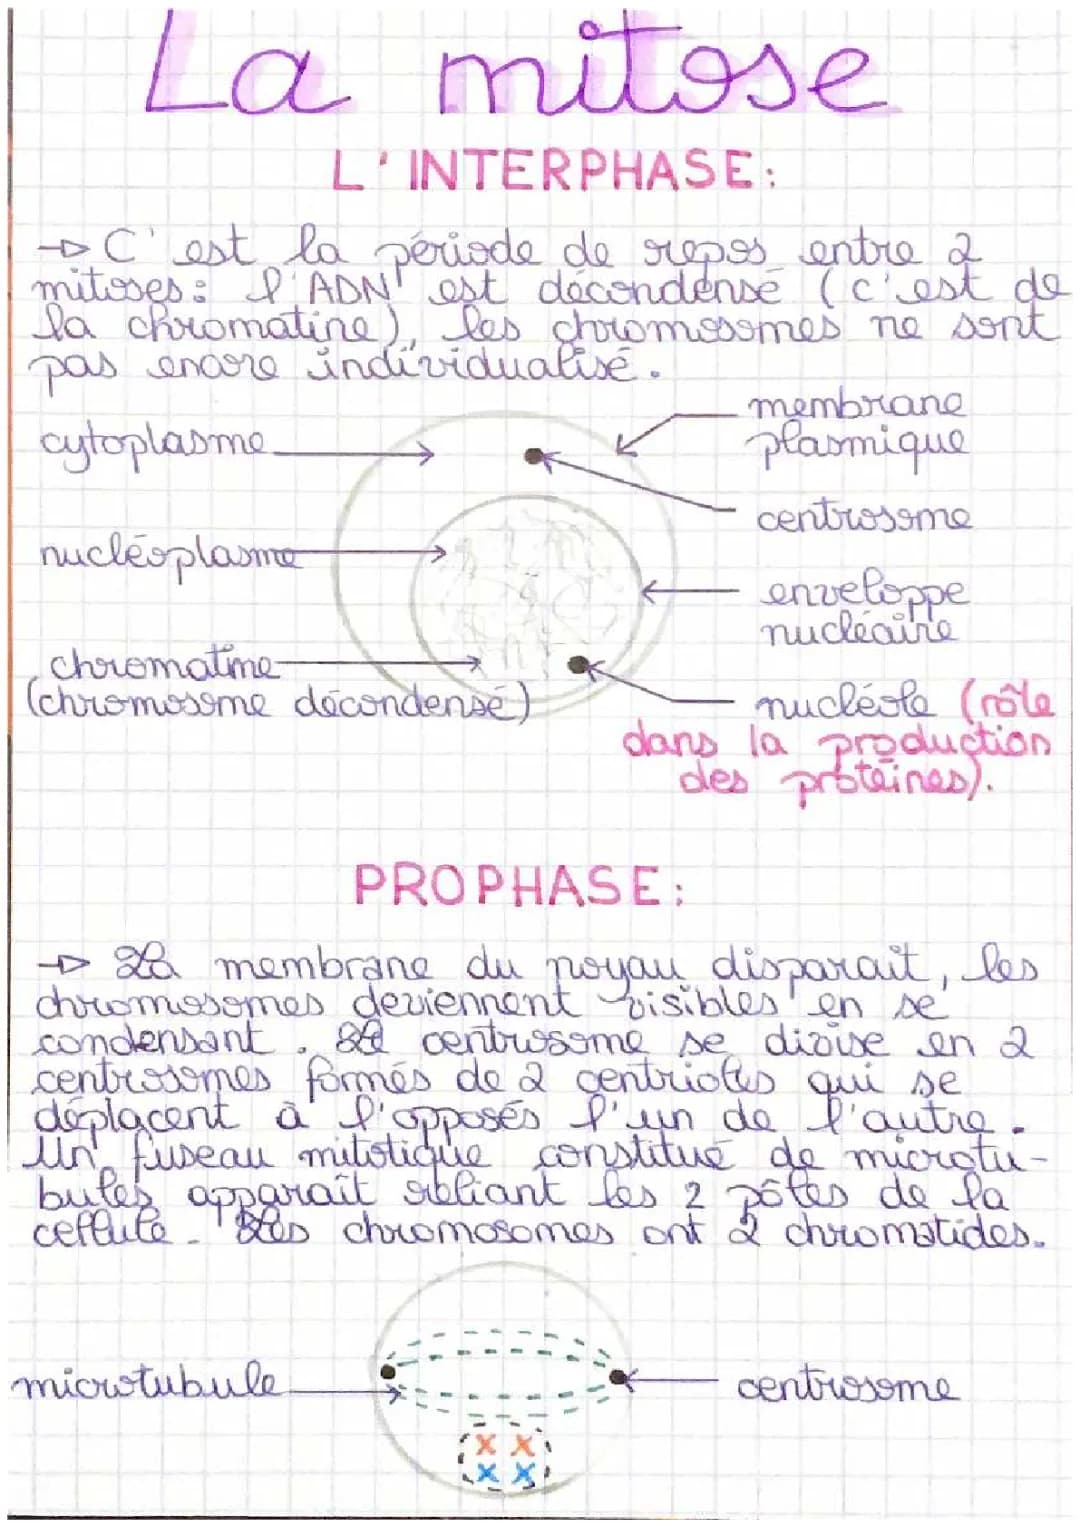 La mitose
L'INTERPHASE:
→ C'est la période de repos entre 2
mitoses: l'ADN est décondensé (c'est de
la chromatine), les chromosomes ne sont
pas encore individualisé.
cytoplasme
membrane
plasmique
centrosome
nucléoplasme
enveloppe
nucléaire
chromatine
(chromosome décondensé)
nucléole (rôle
dans la production
des protéines).
PROPHASE:
→ La membrane du noyau disparait, les
chromosomes deviennent visibles en se
condensant. Le centrosome se divise en 2
centrosomes formés de 2 centrioles qui se
déplacent à l'opposés l'un de l'autre.
Un fuseau mitotique constitué de microtu-
bules apparaît reliant les 2 pôles de la
cellule. Les chromosomes ont 2 chromatides.
microtubule
centrosome